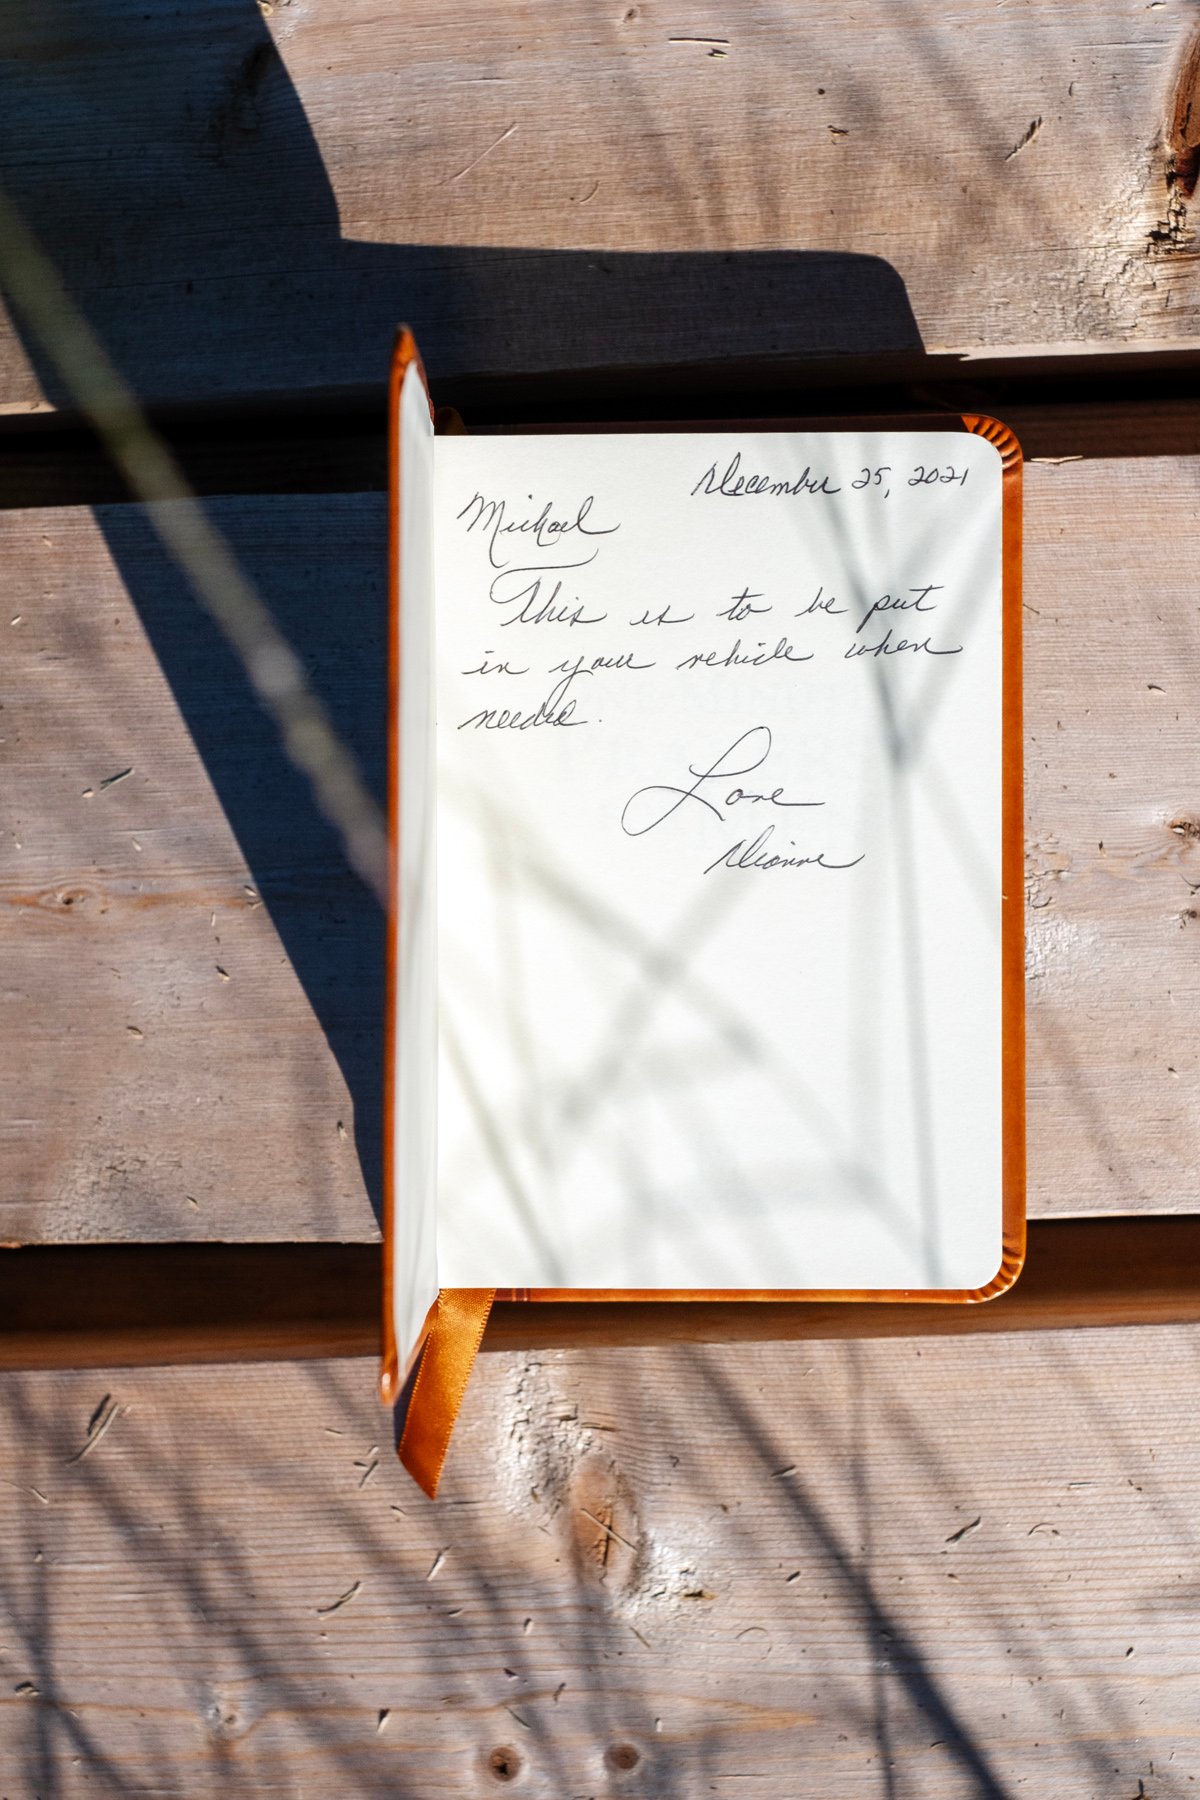 December 25, 2021
Michael
This is to be put
in your vehicle when
needed.
Love
Dianne